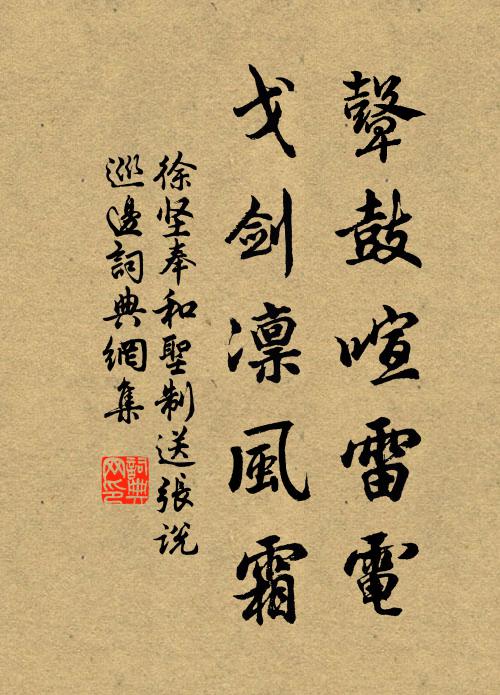 鼙鼓喧雷電
戈剑凛風霜
徐坚奉和聖制送張说
巡邊詞典網集
詞典网印